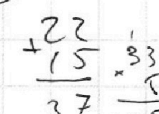 22
+ 15
37
33